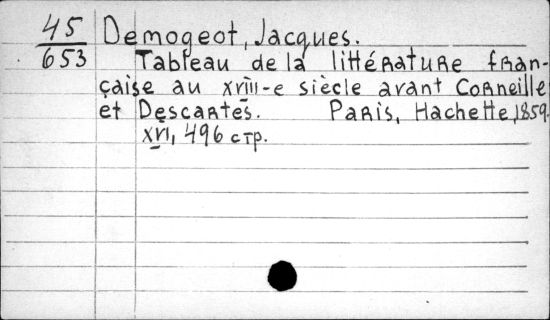 45
653
Demogeot, Jacques.
Tableau de la littérature fran-
çaise au XVIII-e siècle avant Corneille
et Descartes. Paris, Hachette, 1859.
XVI, 496 стр.